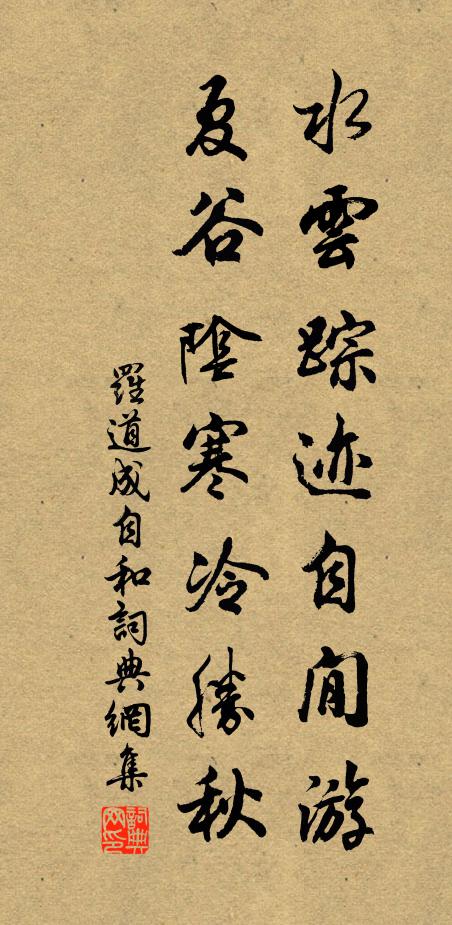 水雲踪迹自閒游
夏谷陰寒冷勝秋
羅道成自和詞典網集
詞典网印